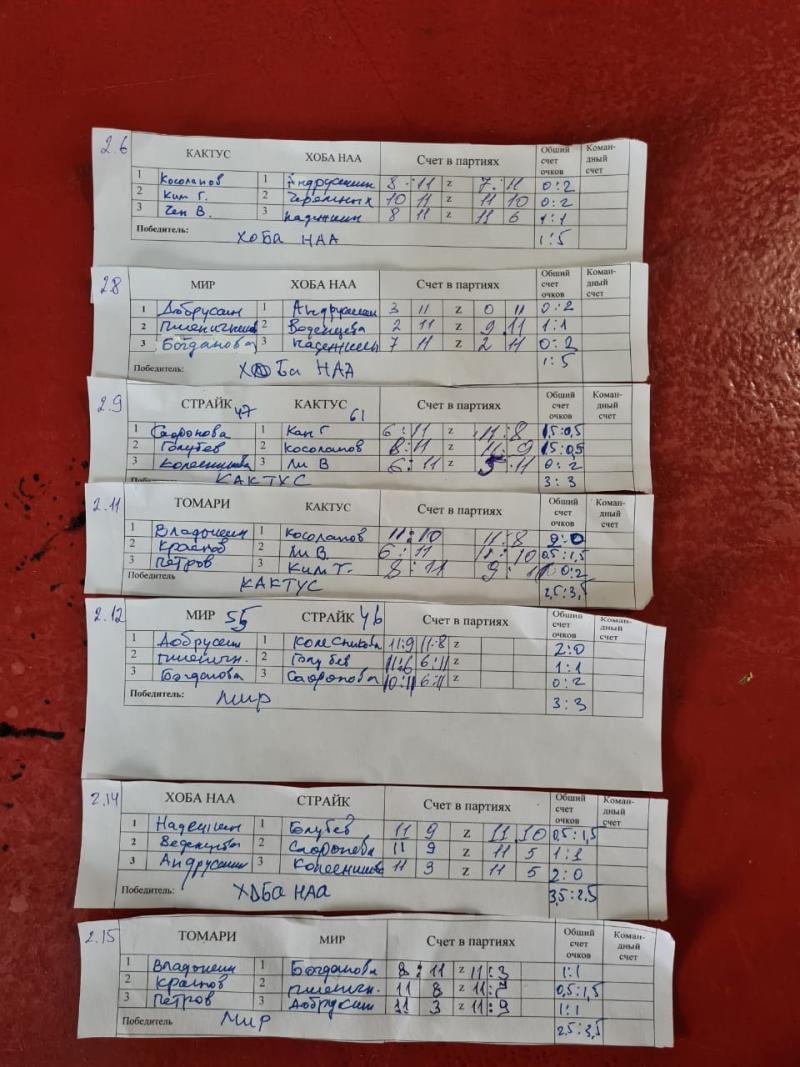 2.6 КАКТУС ХОБА НАА Счет в партиях Общий счет очков Коман-дный счет
1 Косолапов 1 Андрусишин 8 : 11 z 7 : 11 0:2
2 Ким Г. 2 Черемных 10 11 z 11 10 0:2
3 Чен В. 3 8 11 z 11 6 1:1
Победитель: ХОБА НАА 1:5
2.8 МИР ХОБА НАА Счет в партиях Общий счет очков Коман-дный счет
1 Добрусин 1 3 11 z 0 11 0:2
2 2 Веденцева 2 11 z 9 11 1:1
3 Богданова 3 7 11 z 2 11 0:2
Победитель: ХОБа НАА 1:5
2.9 СТРАЙК 47 КАКТУС 61 Счет в партиях Общий счет очков Коман-дный счет
1 Сафронова 1 6 : 11 z 11 : 8 1,5:0,5
2 Голубев 2 Косолапов 8:11 z 11 : 9 1,5:0,5
3 3 Ли В 6 : 11 z 5 11 0:2
КАКТУС 3:3
2.11 ТОМАРИ КАКТУС Счет в партиях Общий счет очков Коман-дный счет
1 1 Косолапов 11:10 11:8 2:0
2 2 Ли В. 6 : 11 : 10 0,5:1,5
3 Петров 3 8 : 11 9 : 0:2
Победитель КАКТУС 2,5:3,5
2.12 МИР 55 СТРАЙК 46 Счет в партиях Общий счет очков Коман-дный счет
1 Добрусин 1 Колесникова 11:9 11:8 z 2:0
2 Пшеничн. 2 Голубев 11:6 6:11 z 1:1
3 Богданова 3 Сафронова 10:11 6:11 z 0:2
Победитель: Мир 3:3
2.14 ХОБА НАА СТРАЙК Счет в партиях Общий счет очков Коман-дный счет
1 1 Голубев 11 9 z 11 10 0,5:1,5
2 Веденцева 2 Сафронова 11 9 z 11 5 1:1
3 3 11 3 z 11 5 2:0
Победитель: ХОБА НАА 3,5:2,5
2.15 ТОМАРИ МИР Счет в партиях Общий счет очков Коман-дный счет
1 1 Богданова 8 : 11 z 11:3 1:1
2 2 Пшеничн. 11 8 z 11:7 0,5:1,5
3 Петров 3 11 3 z 11:9 1:1
Победитель Мир 2,5:3,5